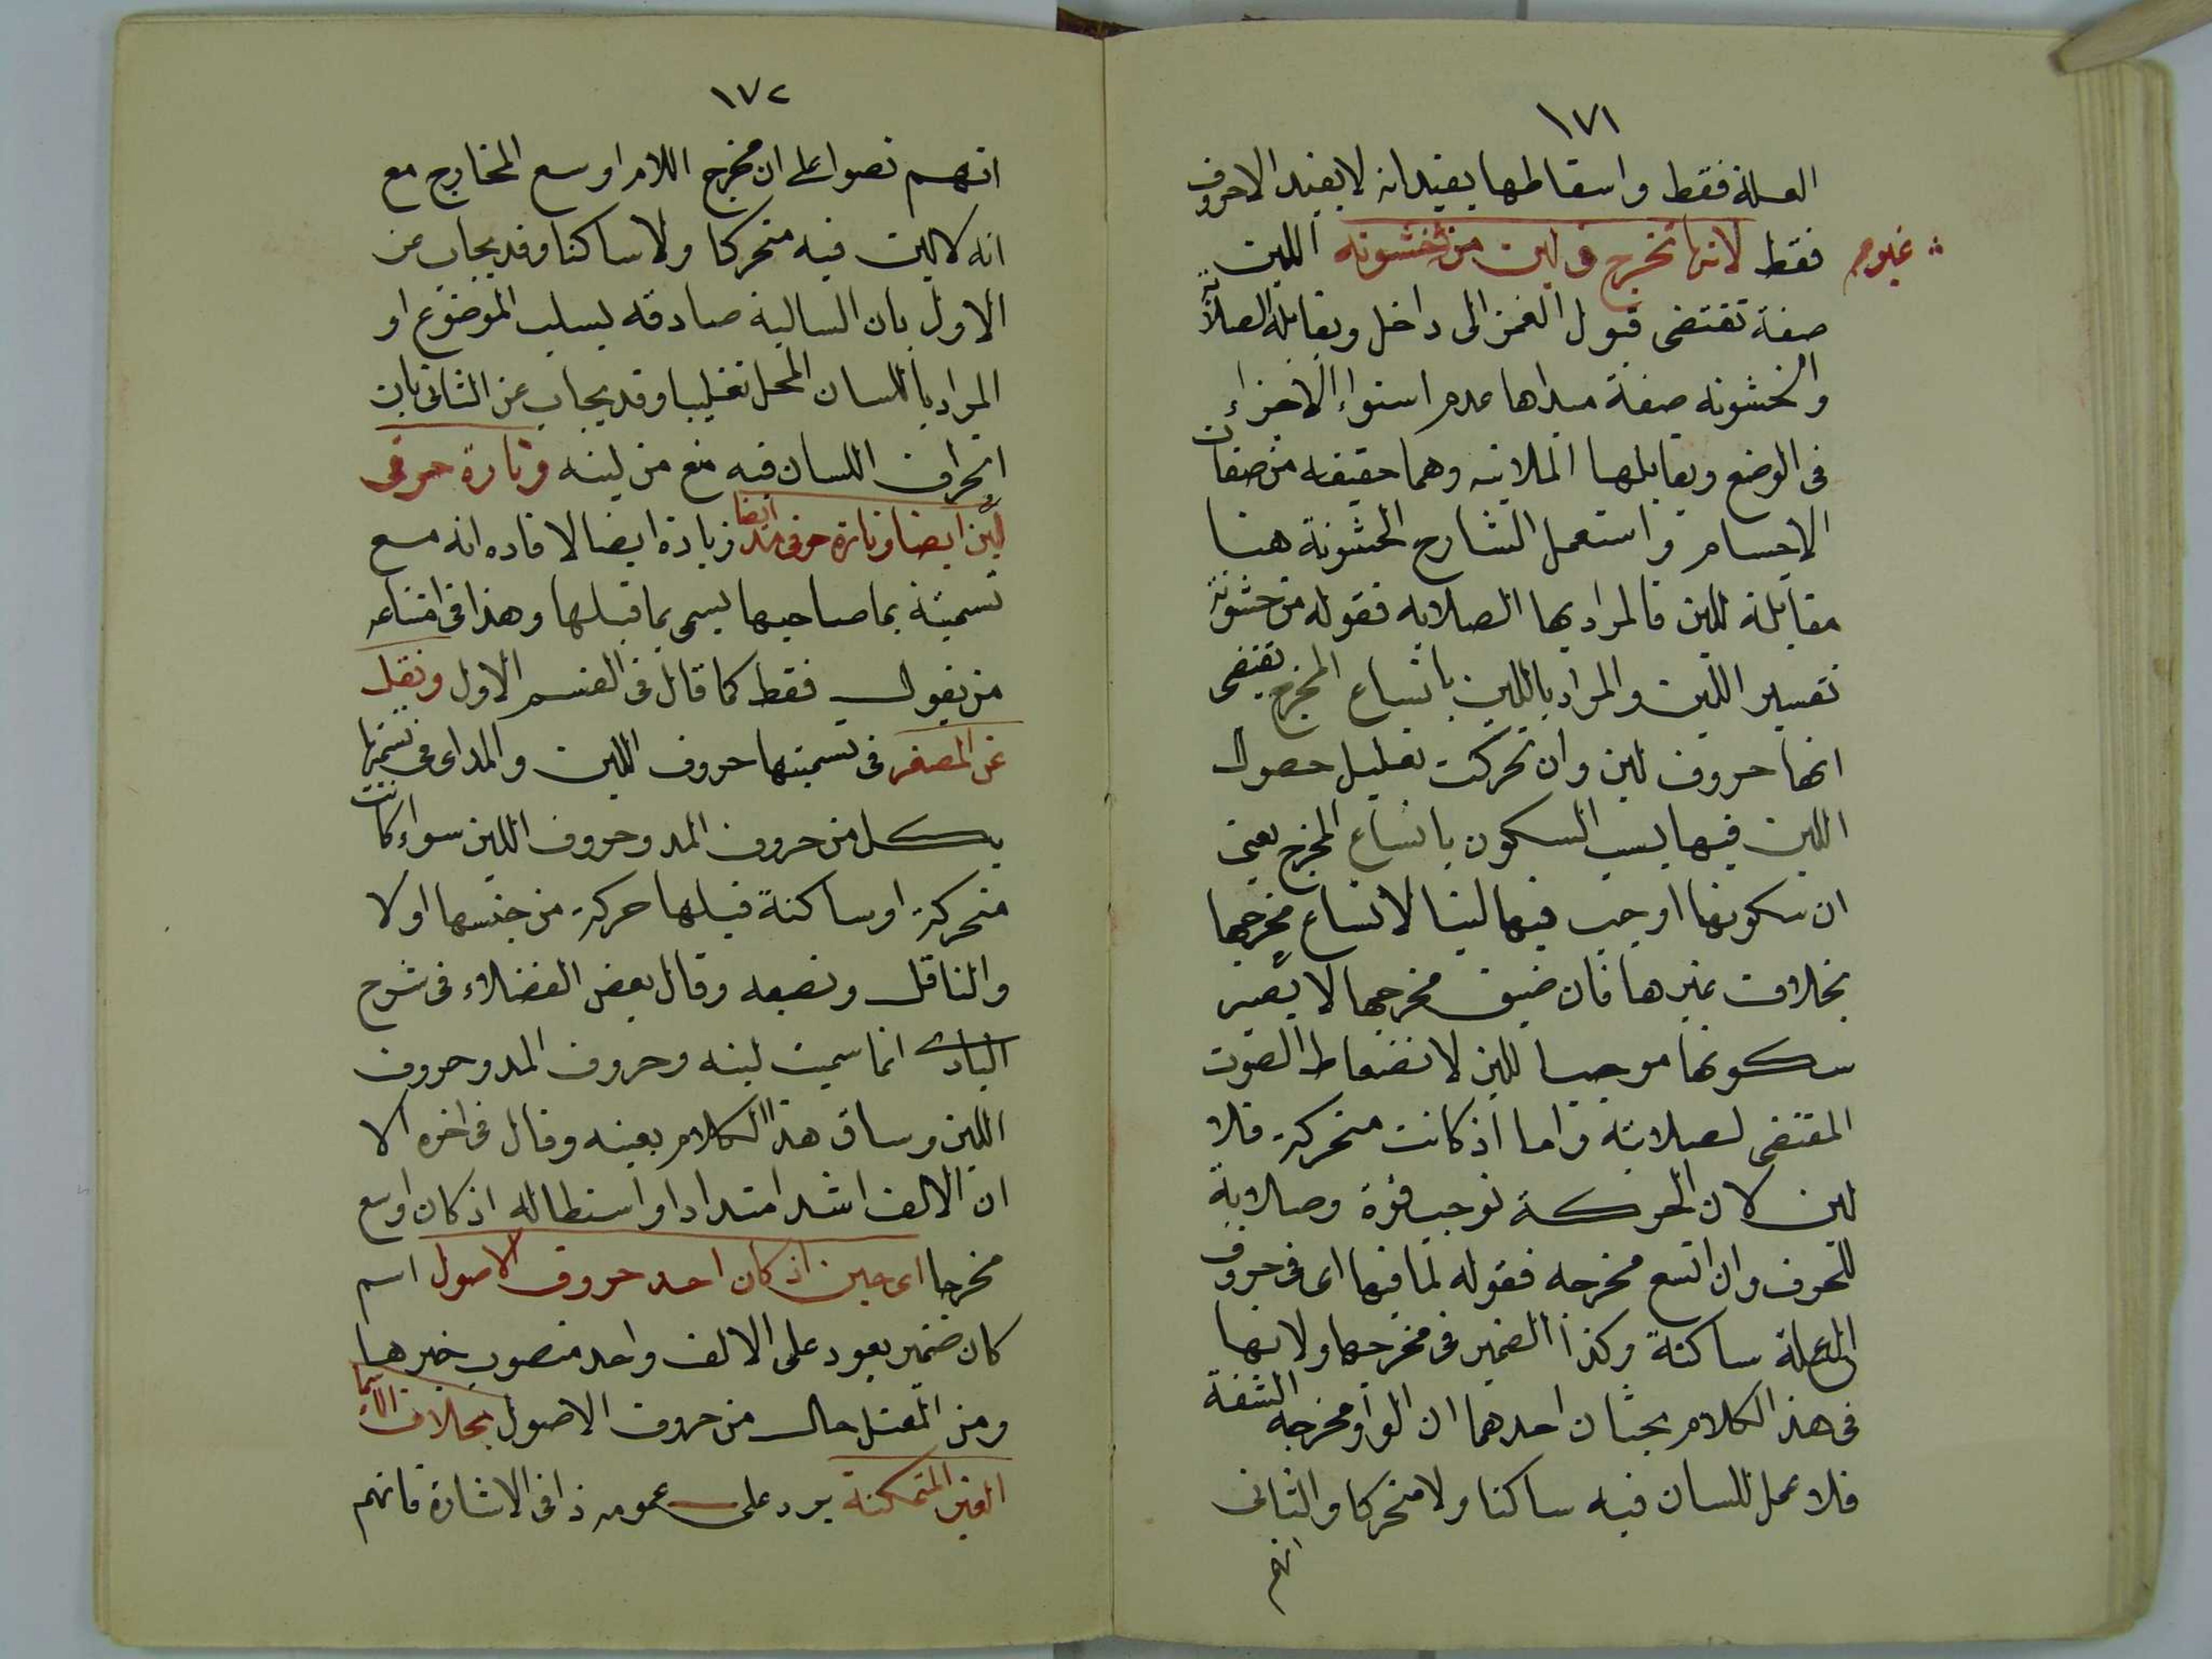 ١٧١
العلة فقط واسقاطها يفيد انه لا يفيد الاحروف
فقط لانها تخرج فى لين من غير خشونه اللين
صفة تقتضى قبول الغمز الى داخل ويقابله الصلابة
والخشونه صفة مبداها عدم استواء الاجزاء
فى الوضع ويقابلها الملاينه وهما حقيقه من صفات
الاجسام واستعمل الشارح الخشونة هنا
مقابلة للين فالمراد بها الصلابه فقوله من خشونة
تفسير اللين والمراد باللين باتساع المخرج يقتضى
انها حروف لين وان تحركت تعليل حصول
اللين فيها بسبب السكون باتساع المخرج يعنى
ان سكونها اوجب فيها لينا لاتساع مخرجها
بخلاف غيرها فان ضيق مخرجها لا يصير
سكونها موجبا للين لانضغاط الصوت
المقتضى لصلابته واما اذ كانت متحركة فلا
لين لان الحركة توجب قوة وصلابة
للحروف وان اتسع مخرجه فقوله لما فيها اى فى حروف
العلة ساكنة وكذا الضمير فى مخرجها ولانها
فى هذ الكلام بحثان احدهما ان الواو مخرجه الشفة
فلا عمل للسان فيه ساكنا ولا متحركا والثانى
انهم
١٧٢
انهم نصوا على ان مخرج اللام اوسع المخارج مع
انه لا لين فيه متحركا ولا ساكنا وقد يجاب عن
الاول بان السالبة صادقه بسلب الموضوع او
المراد باللسان المحل تغليبا وقد يجاب عن الثانى بان
انحراف اللسان فيه منع من لينه وتارة حرفى
لين ايضا وتارة حرفى مد ايضا زيادة ايضا لافاده انه مع
تسميتة بما صاحبها يسمى بما قبلها وهذا فى امتناعه
من يقول فقط كما قال فى القسم الاول ونقل
عن المصنف فى تسميتها حروف اللين والمد اى فى تسميتها
بكل من حروف المد وحروف اللين سواء كانت
متحركة او ساكنة قبلها حركة من جنسها او لا
والناقل ونصبه وقال بعض الفضلاء فى شرح
البادى انما سميت لينه وحروف المد وحروف
اللين وساق هذ الكلام بعينه وقال فى اخره الا
ان الالف اشد امتدادا واستطاله اذ كان اوسع
مخرجا اى حين اذ كان احد حروف الاصول اسم
كان ضمير يعود على الالف واحد منصوب خبرها
ومن المعتل حال من حروف الاصول بخلاف الاسما
الغير المتمكنة يرد على عمومه ذا فى الاشارة فانهم